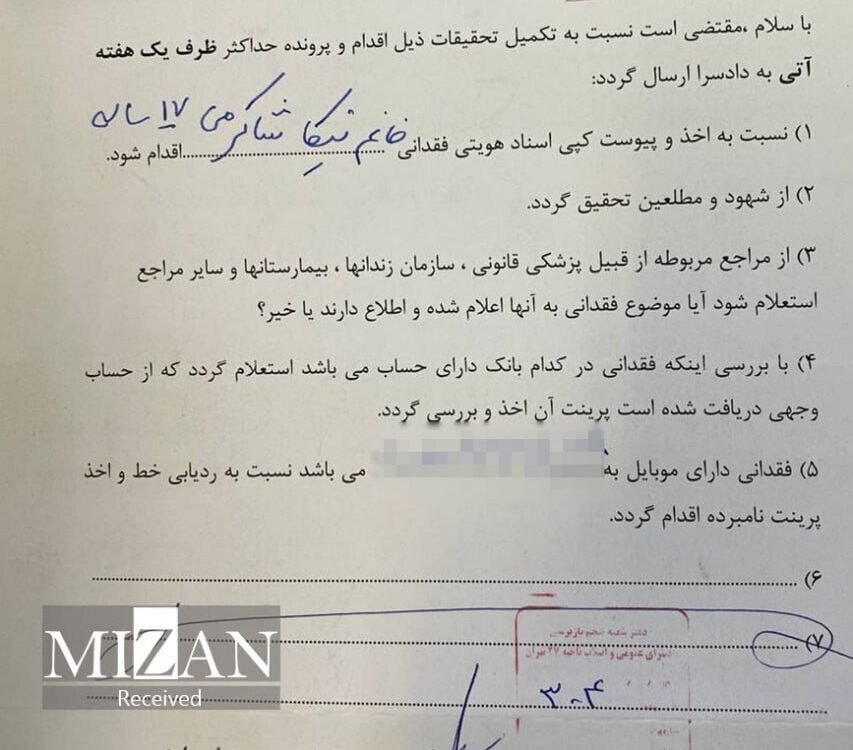 با سلام ،مقتضی است نسبت به تکمیل تحقیقات ذیل اقدام و پرونده حداکثر ظرف یک هفته
آتی به دادسرا ارسال گردد:
۱) نسبت به اخذ و پیوست کپی اسناد هویتی فقدانی خانم نیکا شاکرمی ۱۷ ساله اقدام شود.
۲) از شهود و مطلعین تحقیق گردد.
۳) از مراجع مربوطه از قبیل پزشکی قانونی ، سازمان زندانها ، بیمارستانها و سایر مراجع
استعلام شود آیا موضوع فقدانی به آنها اعلام شده و اطلاع دارند یا خیر؟
۴) با بررسی اینکه فقدانی در کدام بانک دارای حساب می باشد استعلام گردد که از حساب
وجهی دریافت شده است پرینت آن اخذ و بررسی گردد.
۵) فقدانی دارای موبایل به می باشد نسبت به ردیابی خط و اخذ
پرینت نامبرده اقدام گردد.
۶)
۷)
دفتر شعبه بازپرسی
دسرای عمومی و انقلاب ناحیه ۲۷ تهران
۳۰۴
MIZAN
Received